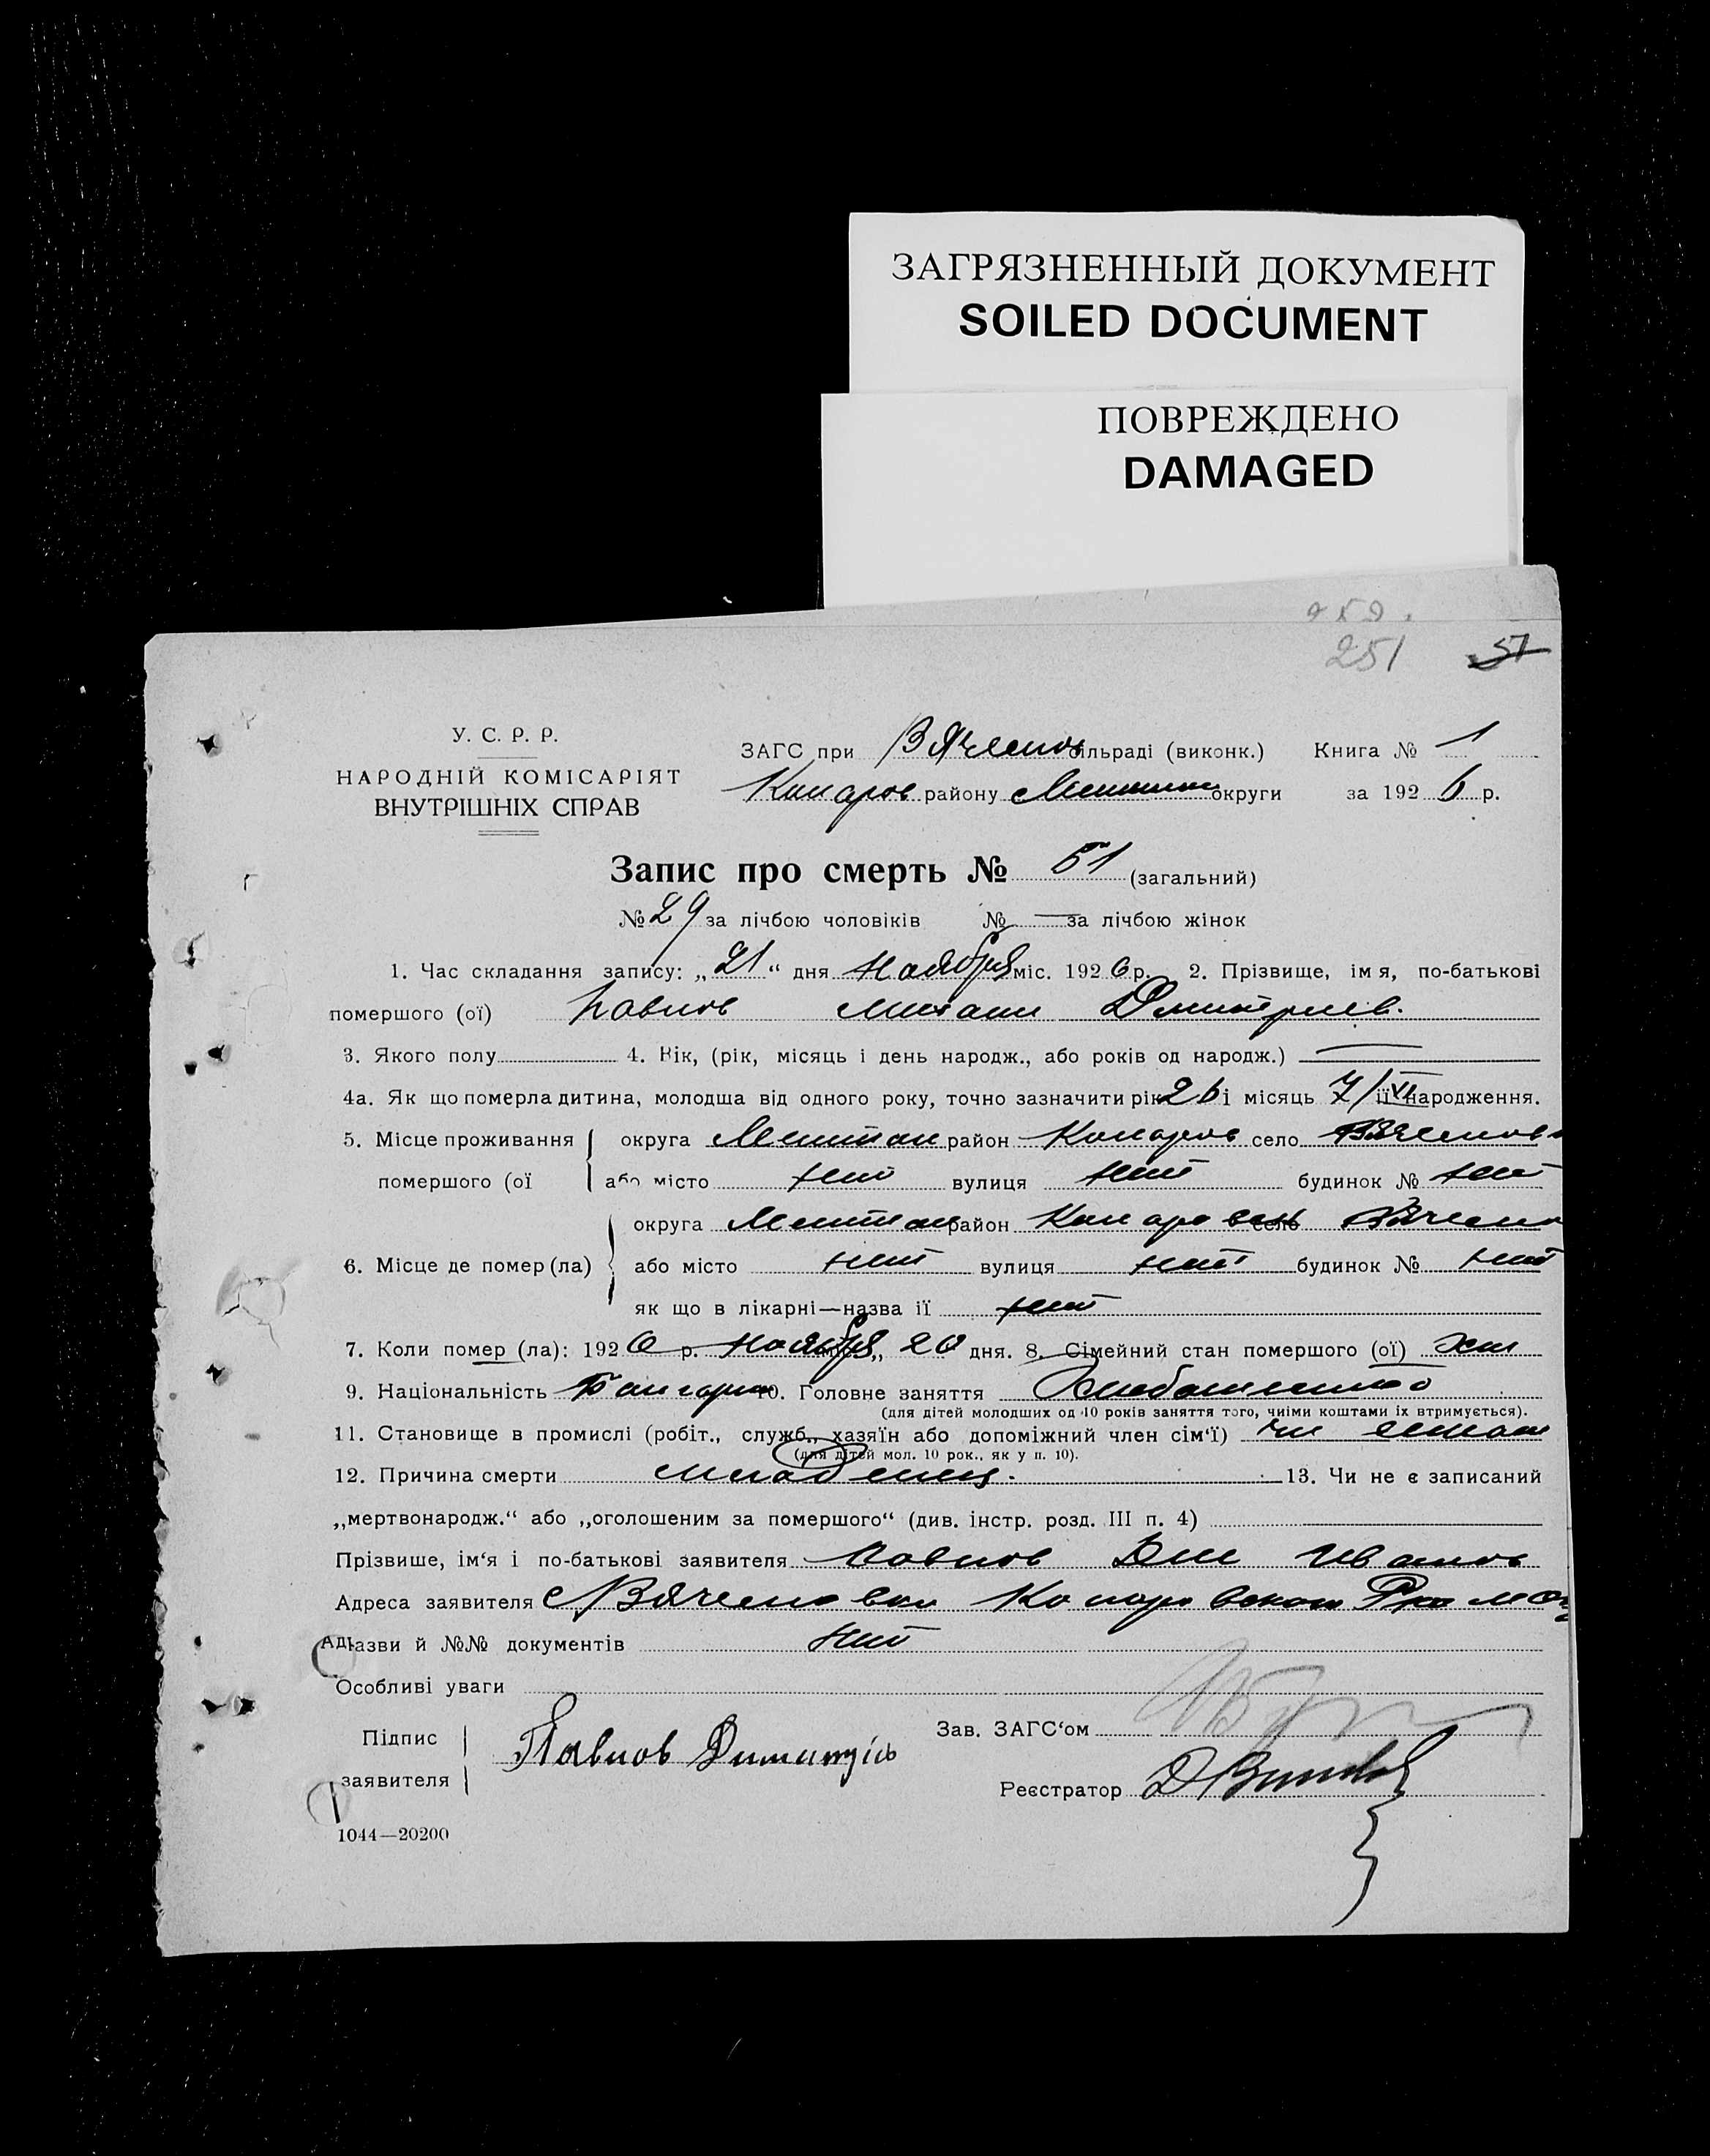 ЗАГРЯЗНЕННЫЙ ДОКУМЕНТ
SOILED DOCUMENT
ПОВРЕЖДЕНО
DAMAGED
251 51
У. С. Р. Р.
НАРОДНІЙ КОМІСАРІЯТ
ВНУТРІШНІХ СПРАВ
ЗАГС при Вячеслов сільраді (виконк.) Книга № 1
району округи за 192 6 р.
Запис про смерть № 51 (загальний)
№ 29 за лічбою чоловіків № — за лічбою жінок
1. Час складання запису: „ 21 “ дня Ноября міс. 192 6 р. 2. Прізвище, імя, по-батькові
помершого (ої) Павлов Михаил Дмитриев.
3. Якого полу 4. Вік, (рік, місяць і день народж., або років од народж.) —
4а. Як що померла дитина, молодша від одного року, точно зазначити рік 26 і місяць 7/VI її народження.
5. Місце проживання округа район село
помершого (ої або місто нет вулиця нет будинок № нет
округа район село
6. Місце де помер (ла) або місто нет вулиця нет будинок № нет
як що в лікарні—назва ії нет
7. Коли помер (ла): 192 6 р. Ноября „ 20 дня. 8. Сімейний стан помершого (ої) хол
9. Національність Болгарин 10. Головне заняття
(для дітей молодших од 10 років заняття того, чиїми коштами їх втримується).
11. Становище в промислі (робіт., служб., хазяїн або допоміжний член сім‘ї)
(для дітей мол. 10 рок., як у п. 10).
12. Причина смерти младенец. 13. Чи не є записаний
„мертвонародж.“ або „оголошеним за помершого“ (див. інстр. розд. III п. 4)
Прізвище, ім‘я і по-батькові заявителя Павлов Дм Иванов
Адреса заявителя
Назви й №№ документів нет
Особливі уваги
Підпис
заявителя
Павлов Димитрій
Зав. ЗАГС‘ом
Реєстратор
1044—20200